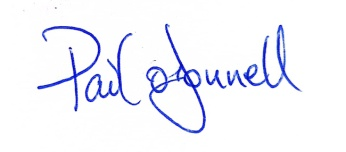 Paul O'Donnell